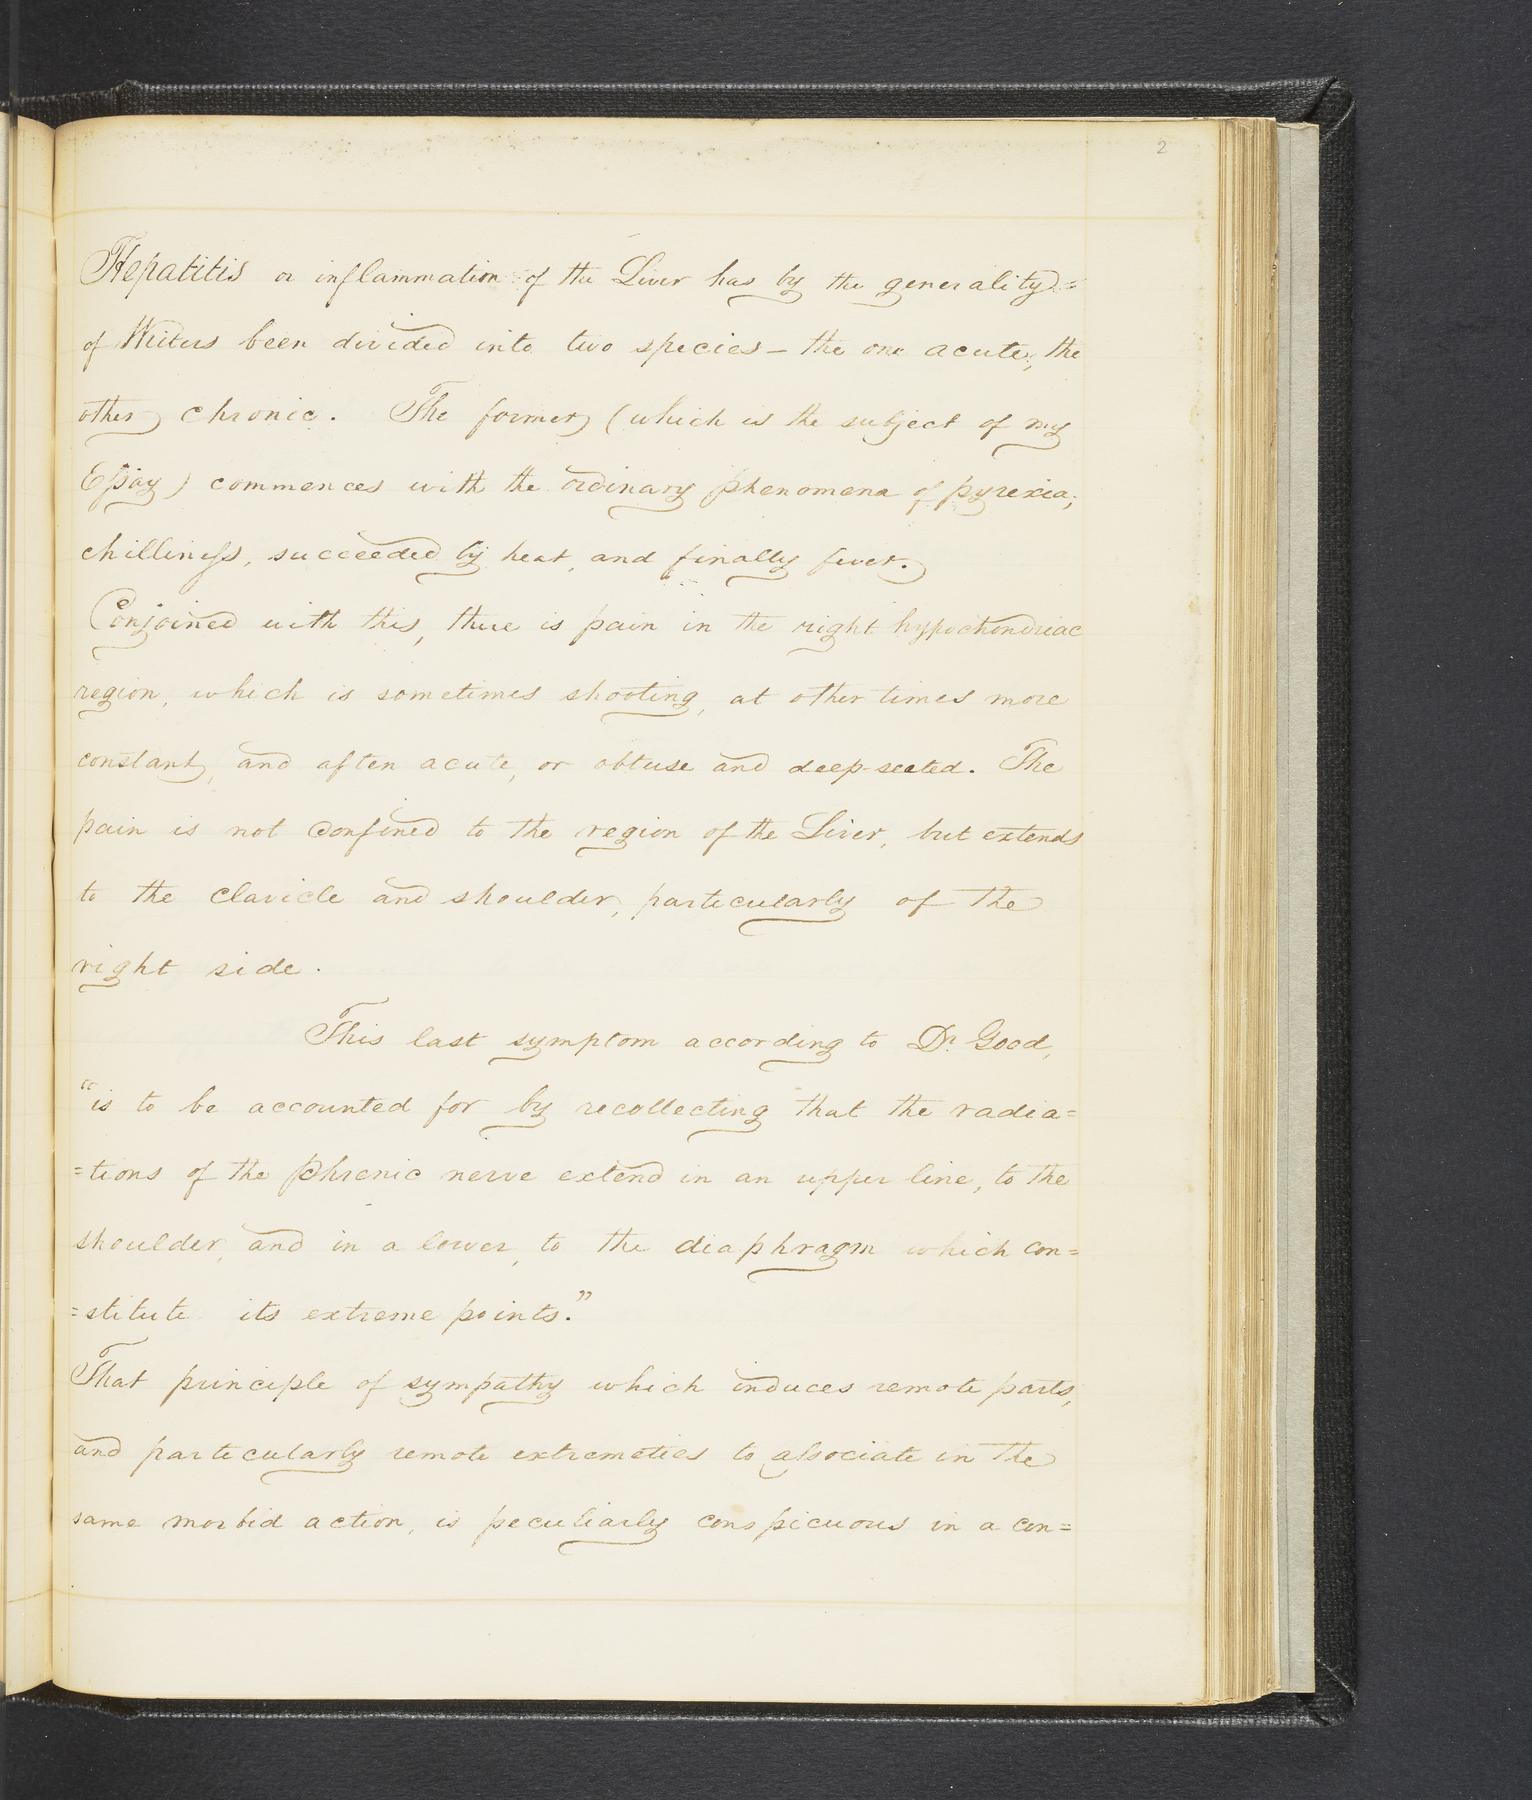 2
Hepatitis or inflammation of the Liver has by the generality=
of Writers been divided into two species – the one acute, the
other chronic. The former (which is the subject of my
Eſsay) commences with the ordinary phenomena of pyrexia;
chillineſs, succeeded by heat, and finally fever.
Conjoined with this, there is pain in the right hypochondriac
region, which is sometimes shooting, at other times more
constant, and often acute, or obtuse and deep-seated. The
pain is not Confined to the region of the Liver, but extends
to the clavicle and shoulder, particularly of the
right side.
This last symptom according to Dr. Good,
"is to be accounted for by recollecting that the radia=
=tions of the Phrenic nerve extend in an upper line, to the
shoulder, and in a lower, to the diaphragm which con=
=stitute its extreme points."
That principle of sympathy which induces remote parts,
and particularly remote extremeties to aſsociate in the
same morbid action, is peculiarly conspicuous in a con=